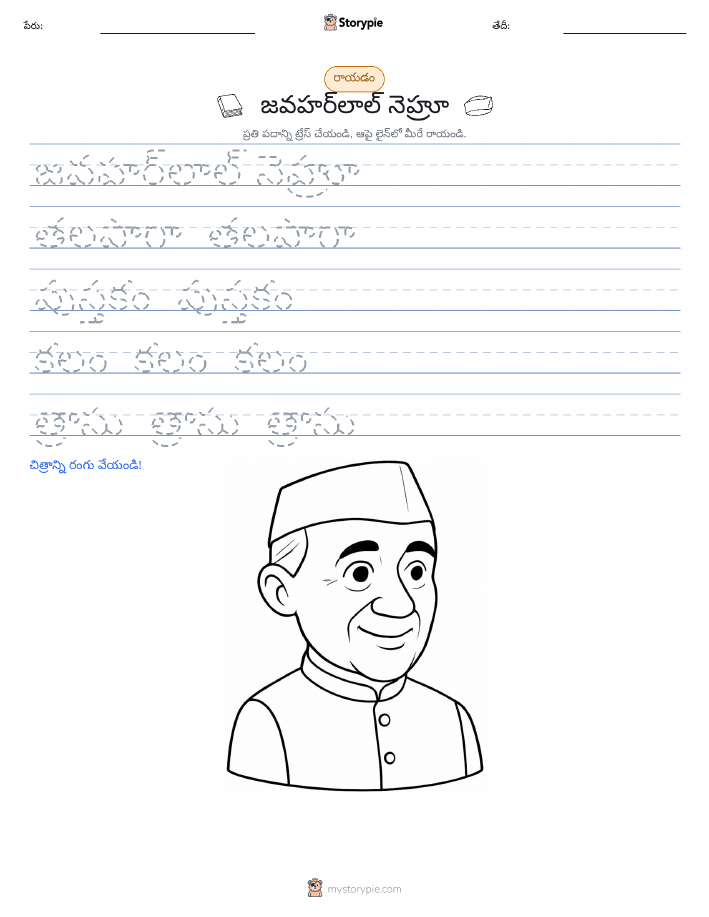 పేరు:
Storypie
తేదీ:
రాయడం
జవహర్‌లాల్ నెహ్రూ
ప్రతి పదాన్ని ట్రేస్ చేయండి, ఆపై లైన్‌లో మీరే రాయండి.
జవహర్‌లాల్ నెహ్రూ
తలపాగా తలపాగా
పుస్తకం పుస్తకం
కలం కలం కలం
త్రాసు త్రాసు త్రాసు
చిత్రాన్ని రంగు వేయండి!
mystorypie.com